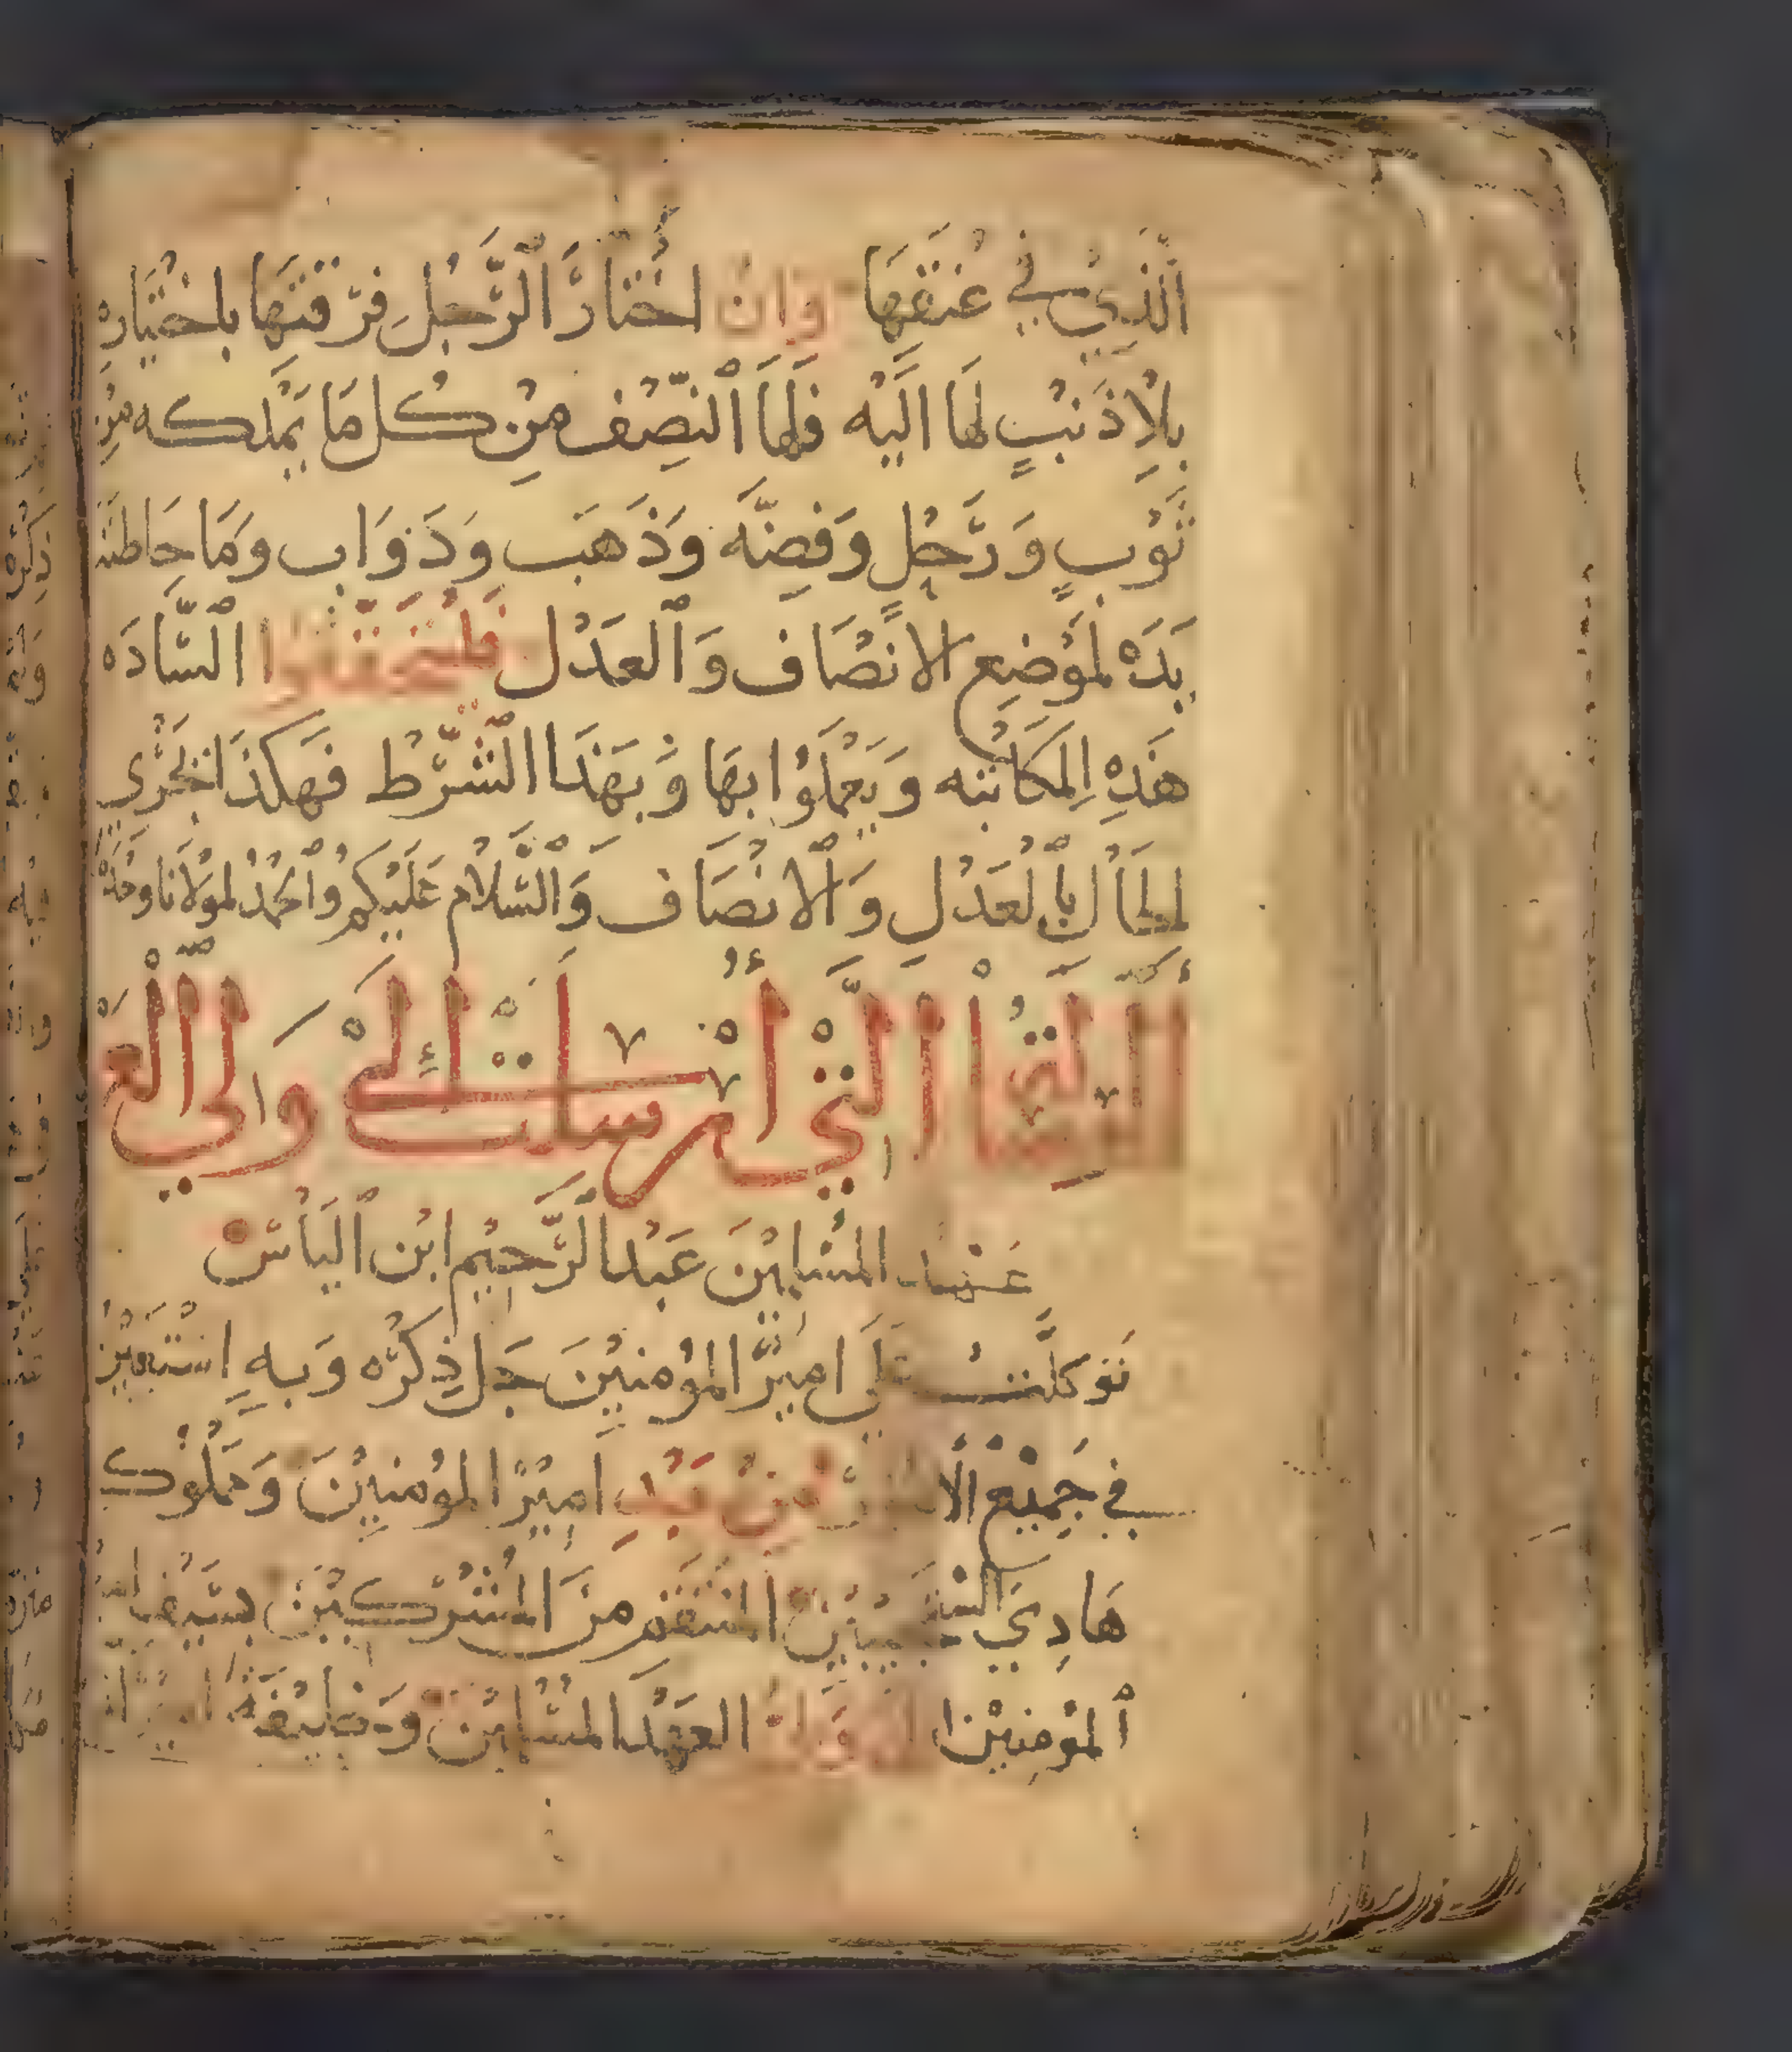 الَّذِي في عُنقهَا وان اختارَ الرَّجُل فرقتَها باختيَاره
بلا ذنبٍ لهَا اليْه فلهَا النصْف مِنْ كُل مَا يمْلكه مِن
ثَوْبٍ وَرَحْلٍ وَفضّه وَذَهَب وَدَوَاب ومَا حَاطته
يَدَهْ لموْضع الانصَاف وَالعَدْل فليتحققوا السَّادَه
هَذِهِ المكَاتبه وَيعْملُوا بهَا وَبهَذا الشَّرْط فهكذا تجْري
الحَال بالعَدْلِ وَالانْصَاف وَالسَّلام عَليْكم والحمْدُ لموْلانا وحْدَهْ
الرسَالة الَّتي أرْسلت إلى وَلي الع
عهد المسْلمِيْنَ عَبْد الرَّحِيْم ابْن اليَاسْ
توَكلْتُ عَلَى امِيْر المؤمنيْنَ جَل ذِكْرُه وَبهِ اسْتَعِيْن
في جَمِيْع الا مِنْ عَبْدِ امِيْر المؤمنِيْنَ وَممْلُوك
هَادِيَ المسْتجيبيْن المنتقم مِنَ المشْركِيْنَ بسَيْف
المؤْمِنِيْن العَهْد المسْلمِيْن وَخليْفَة